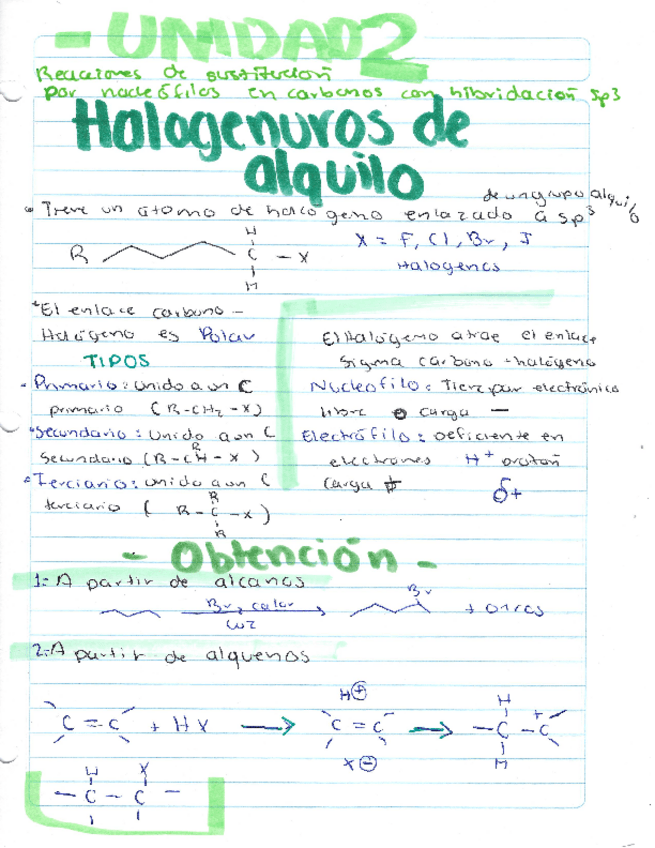 - UNIDAD 2
Reacciones de sustitución
por nucleófilos en carbonos con hibridación sp3
Halogenuros de
alquilo
de un grupo alquilo
• Tiene un átomo de halógeno enlazado a sp3
X = F, Cl, Br, I
Halogenos
R
H
C - X
H
• El enlace carbono -
Halógeno es Polar
TIPOS
- Primario: unido a un C
primario (R-CH2-X)
• Secundario: Unido a un C
R
secundario (R-CH-X)
• Terciario: unido a un C
R
terciario ( R-C-X )
R
El Halógeno atrae el enlace
sigma carbono - halógeno
Nucleofilo: Tiene par electrónico
libre o carga -
Electrófilo: Deficiente en
electrones H+ protón
carga +
δ+
- Obtención -
1.- A partir de alcanos
Br2, calor
luz
Br
+ otros
2.- A partir de alquenos
C = C + HX
H+
C = C
X-
H
- C - C+
H
H X
- C - C -